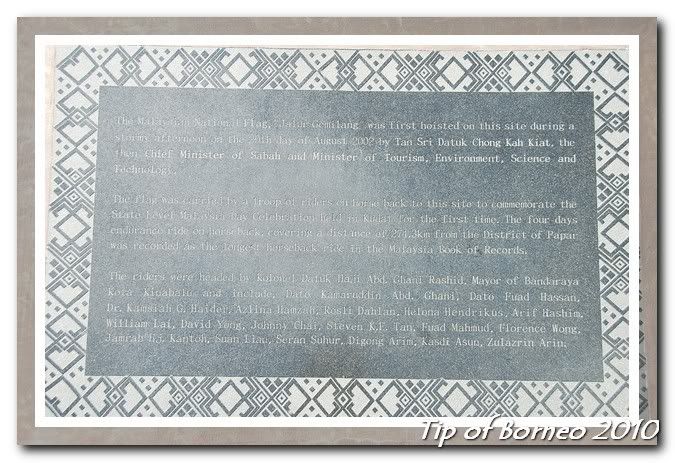 The Malaysian National Flag, "Jalur Gemilang" was first hoisted on this site during a
stormy afternoon on the day of August 2002 by Tan Sri Datuk Chong Kah Kiat, the
then Chief Minister of Sabah and Minister of Tourism, Environment, Science and
Technology.
The flag was carried by a troop of riders on horse back to this site to commemorate the
State Level Malaysia Day Celebration held in Kudat for the first time. The four days
endurance ride on horseback, covering a distance of 271.3km from the District of Papar
was recorded as the longest horseback ride in the Malaysia Book of Records.
The riders were headed by Kolonel Datuk Haji Abd. Ghani Rashid, Mayor of Bandaraya
Kota Kinabalu and include, Dato Kamaruddin Abd. Ghani, Dato Fuad Hassan,
Dr. Kamsiah G. Haider, Azlina Hamzah, Rosli Dahlan, Helona Hendrikus, Arif Hashim,
William Lai, David Yong, Johnny Chai, Steven K.F. Tan, Fuad Mahmud, Florence Wong,
Jamrah Hj. Kantoh, Suan Liau, Seran Suhur, Digong Arim, Kasdi Asun, Zulazrin Arin.
Tip of Borneo 2010